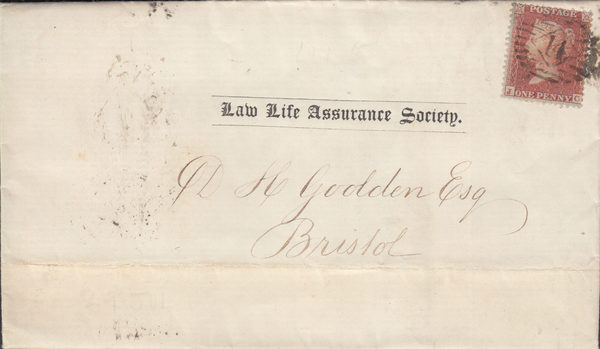 POSTAGE
ONE PENNY
Law Life Assurance Society.
H Goodden Esq
Bristol